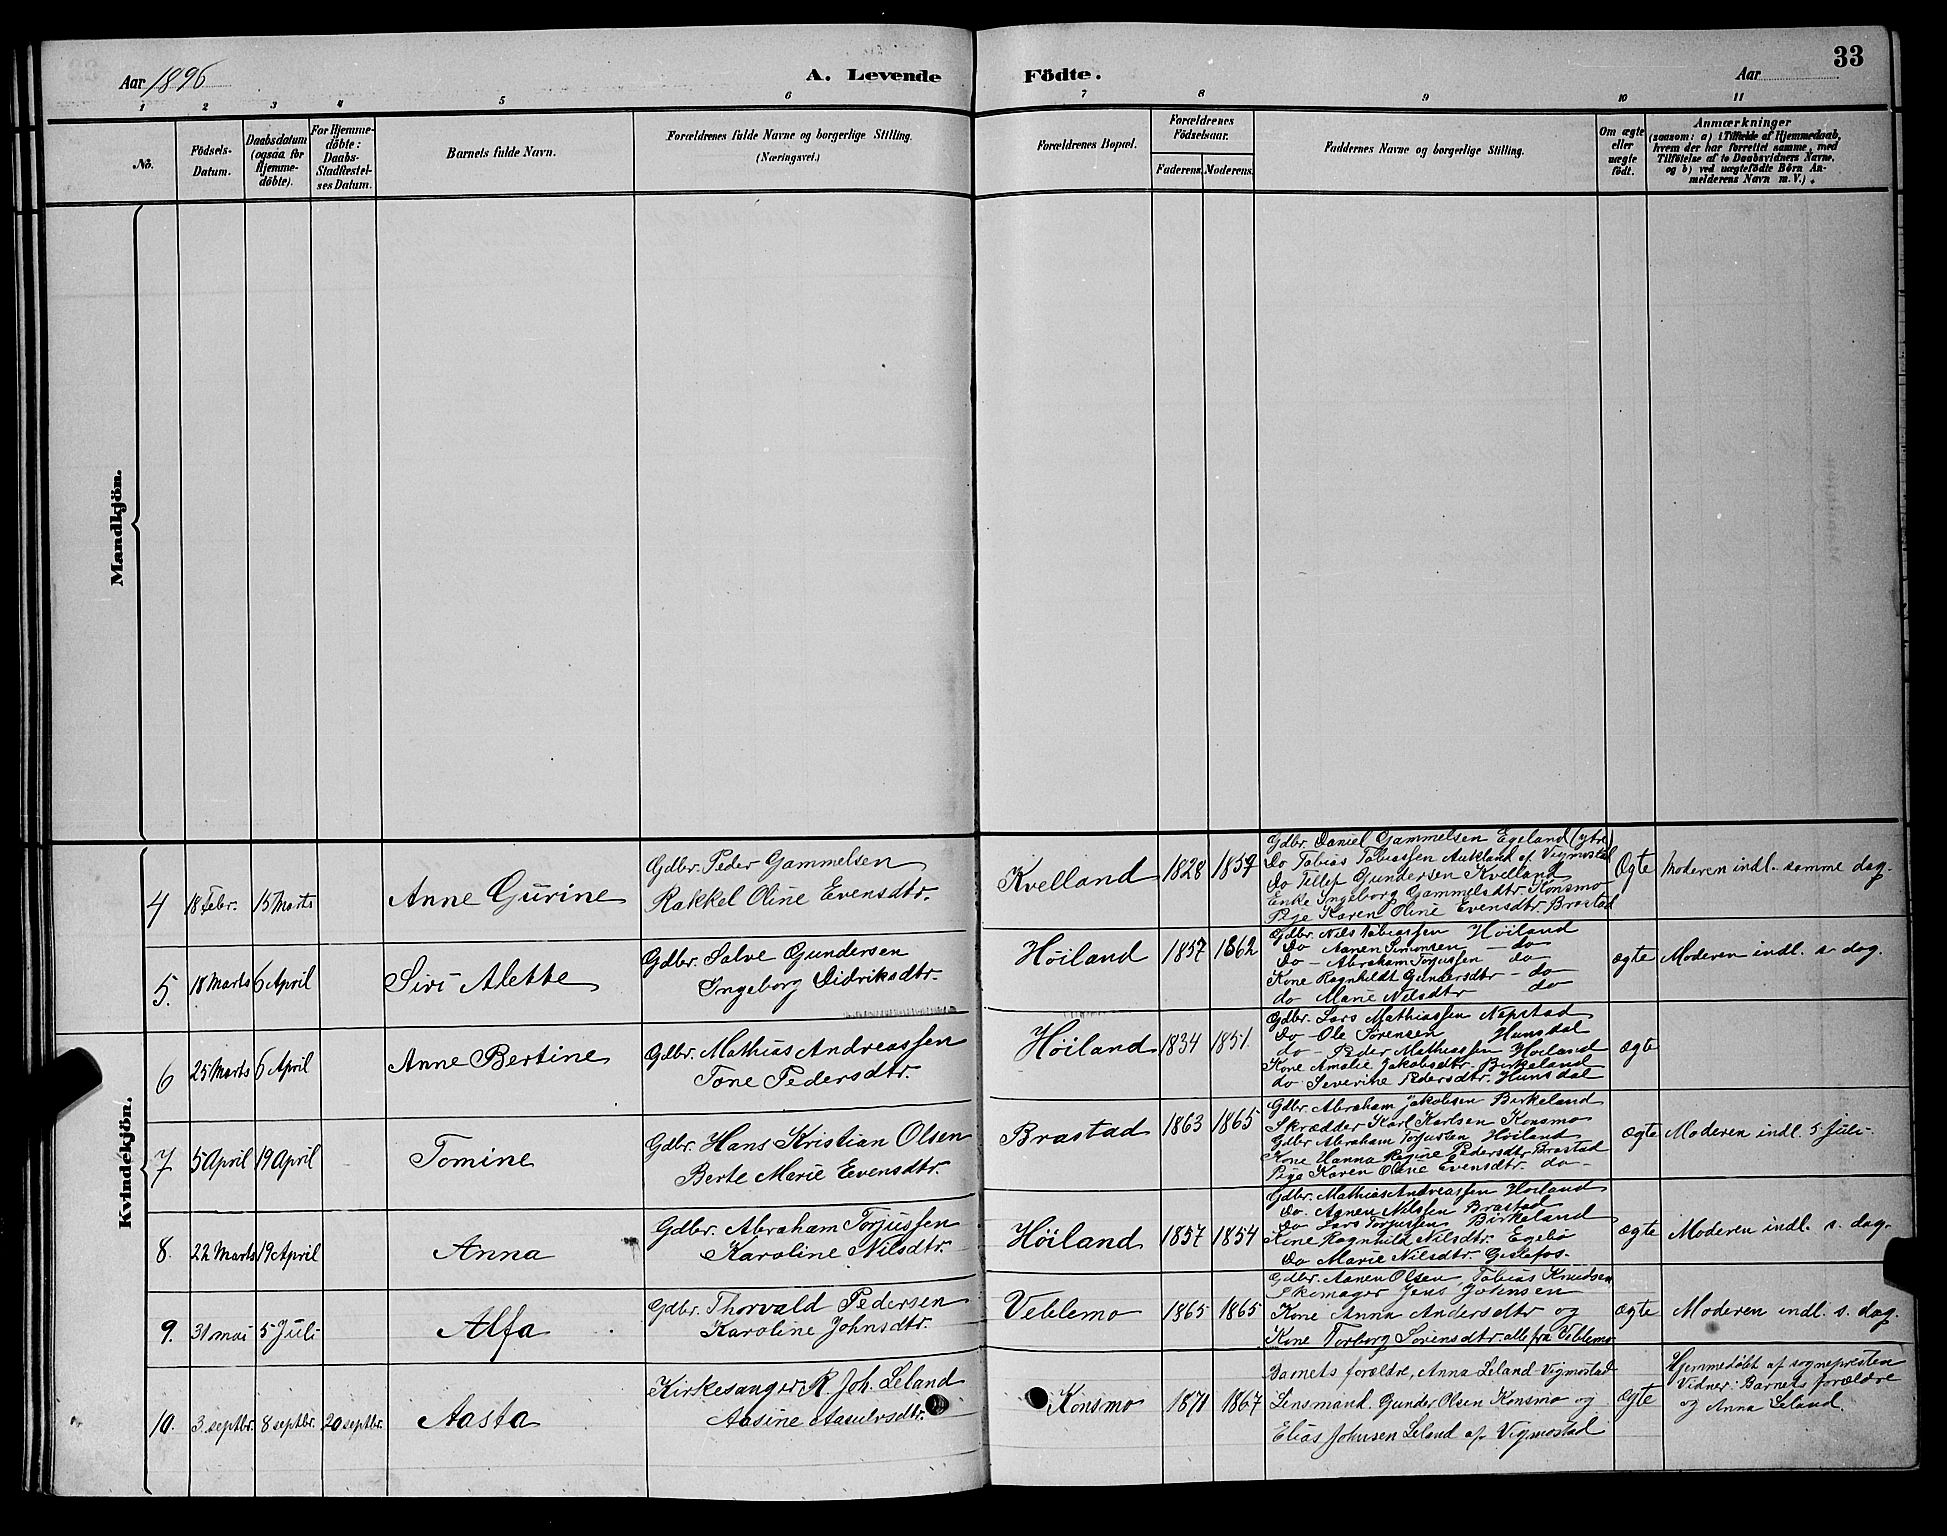 33
Aar 1896
A. Levende Födte.
Aar
1 2 3 4 5 6 7 8 9 10 11
No.
Födsels-Datum.
Daabsdatum (ogsaa for Hjemme-döbte).
For Hjemme-döbte: Daabs-Stadfæstel-ses Datum.
Barnets fulde Navn.
Forældrenes fulde Navne og borgerlige Stilling.
(Næringsvei.)
Forældrenes Bopæl.
Forældrenes Födselsaar.
Faderens. Moderens.
Faddernes Navne og borgerlige Stilling.
Om ægte eller uægte födt.
Anmærkninger
(saasom: a) i Tilfælde af Hjemmedaab,
hvem der har forrettet samme, med
Tilföielse af to Daabsvidners Navne,
og b) ved uægtefödte Börn An-
melderens Navn m. V.).
Mandkjön.
Kvindekjön.
4 18 Febr. 15 Marts Anne Gurine
Gdbr. Peder Gammelsen
Rakkel Oline Evensdtr.
Kvelland 1828 1857
Gdbr Daniel Gammelsen Egeland (ytre)
Do Tobias Tobiassen Aukland af Vigmostad
Do Tellef Gundersen Kvelland
Enke Ingeborg Gammelsdtr. Konsmo
Pige Karen Oline Evensdtr. Brastad
Ægte Moderen indl. samme dag.
5. 18 Marts 6 April Siri Alette
Gdbr. Salve Gundersen
Ingeborg Didriksdtr.
Höiland 1857 1862
Gdbr. Nils Tobiassen Höiland
Do Aanen Simonsen - do
Do - Abraham Torjussen do
Kone Ragnhildt Gundersdtr - do
do Marie Nilsdtr do
ægte Moderen indl. s. dag.
6 25 Marts 6 April Anne Bertine
Gdbr. Mathias Andreassen
Tone Pedersdtr.
Höiland 1834 1851.
Gdbr. Lars Mathiassen Nepstad
Do - Ole Sörensen Hunsdal
do - Peder Mathiassen Höiland
Kone Amalie Jakobsdtr. Birkeland
do Severine Pedersdtr. Hunsdal
ægte
7 5 April 19 April Tomine
Gdbr. Hans Kristian Olsen
Berte Marie Evensdtr.
Brastad 1863 1865
Gdbr. Abraham Jakobsen Birkeland
Skrædder Karl Karlsen Konsmo
Gdbr Abraham Torjussen Höiland
Kone Hanna Regine Pedersdtr Brastad
Pige Karen Oline Evensdtr. do
ægte Moderen indl. 5 Juli
8. 22 Marts 19 April Anna
Gdbr. Abraham Torjussen
Karoline Nilsdtr.
Höiland 1857 1854
Gdbr. Mathias Andreassen Höiland
Do. Aanen Nilssen Brastad
Do Lars Torjussen Birkeland
Kone Ragnhild Nilsdtr. Egebö
Do Marie Nilsdtr. Gislefos.
ægte Moderen indl. s. dag.
9. 31 mai 5 Juli Alfa
Gdbr. Thorvald Pedersen
Karoline Johnsdtr.
Veblemo 1865 1865
Gdbr. Aanen Olsen, Tobias Knudsen
Skomager Jens Johnsen
Kone Anna Andersdtr og
Kone Torborg Sörensdtr. alle fra Veblemo
ægte Moderen indl. s. dag.
10. 3 septbr. 8 septbr. 20 septbr. Aasta
Kirkesanger R. Joh. Leland
Aasine Aasulvsdtr.
Konsmo 1871 1867
Barnets forældre, Anna Leland Vigmostad
Lensmand. Gunder Olsen Konsmo og
Elias Johnsen Leland af Vigmostad
ægte
Hjemmedöbt af sognepresten
Vidner: Barnets forældre
og Anna Leland.